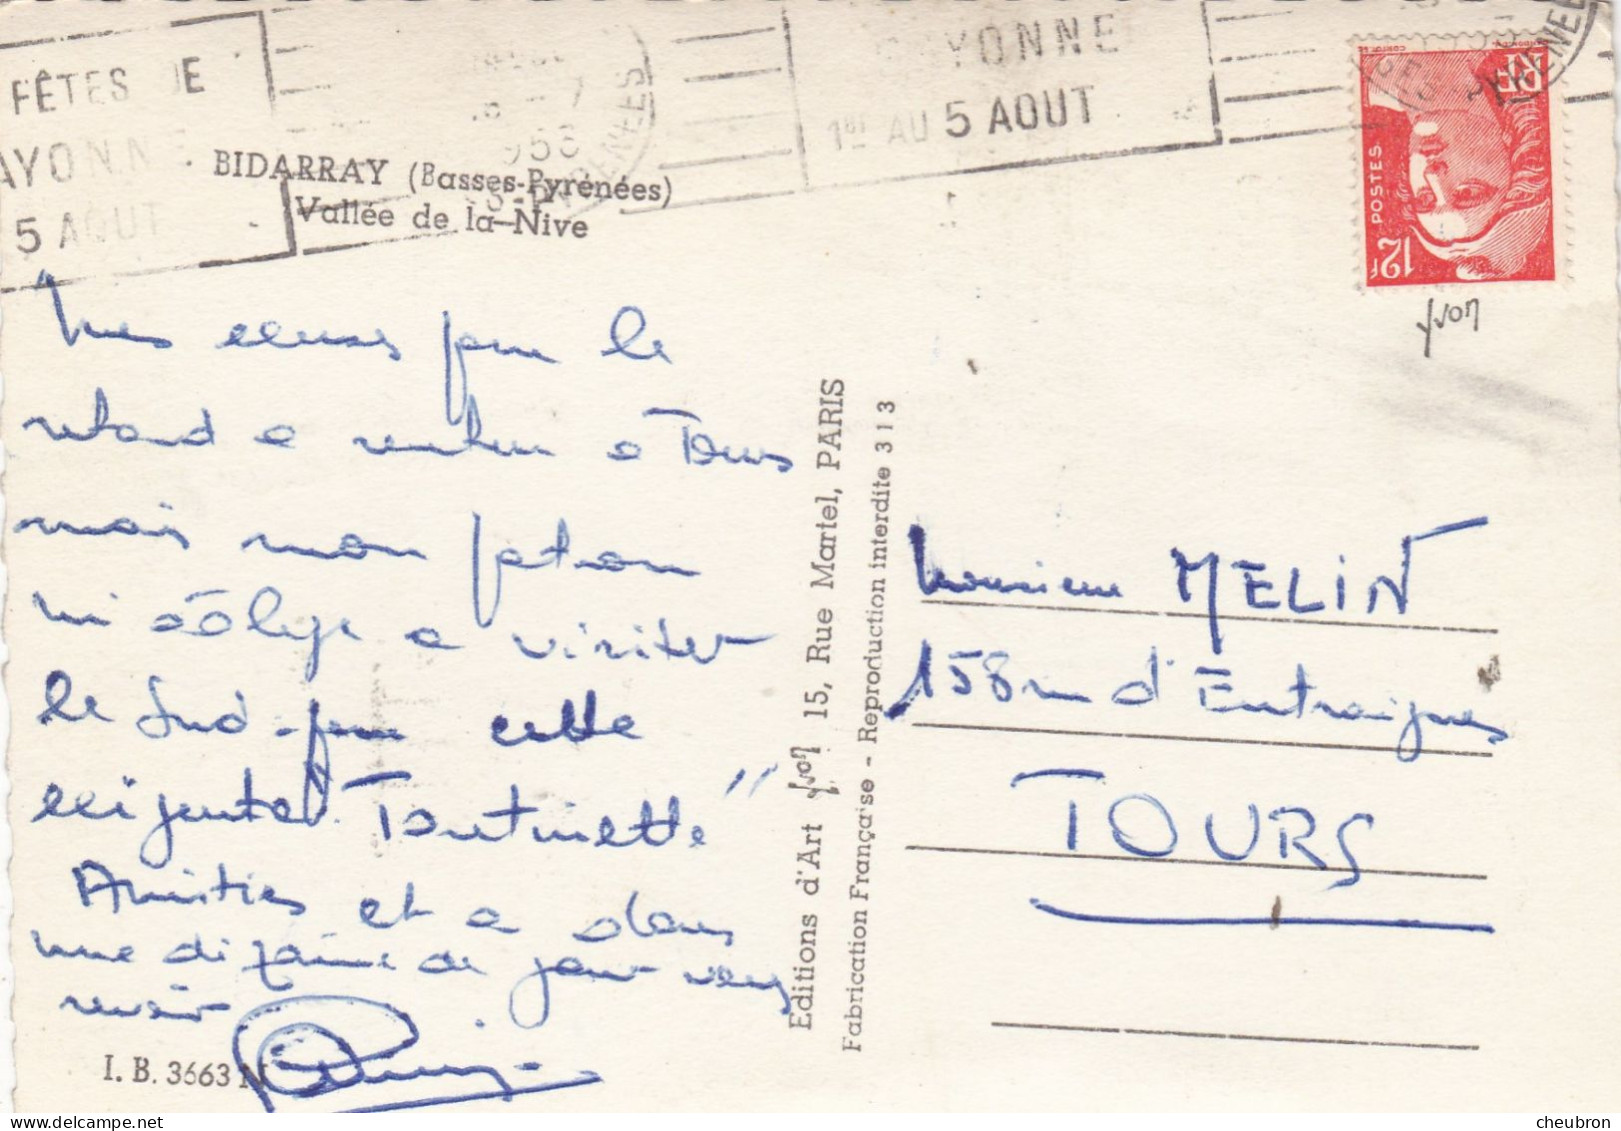 FÊTES DE
AYONNE
5 AOUT
YONNE
1er AU 5 AOUT
PYRENEES
RF
POSTES
12F
BIDARRAY (Basses-Pyrénées)
Vallée de la Nive
Yvon
Mes excuses pour le
retard a rentrer a Tours
mais mon patron
m'oblige a visiter
le Sud - pour cette
Toutinette"
Amitiés et a dans
une dizaine de jour vous
revoir
I. B. 3663 N
Editions d'Art Yvon 15, Rue Martel, PARIS
Fabrication Française - Reproduction interdite 313
Monsieur MELIN
158 rue d'Entraigues
TOURS
cheubron_cher